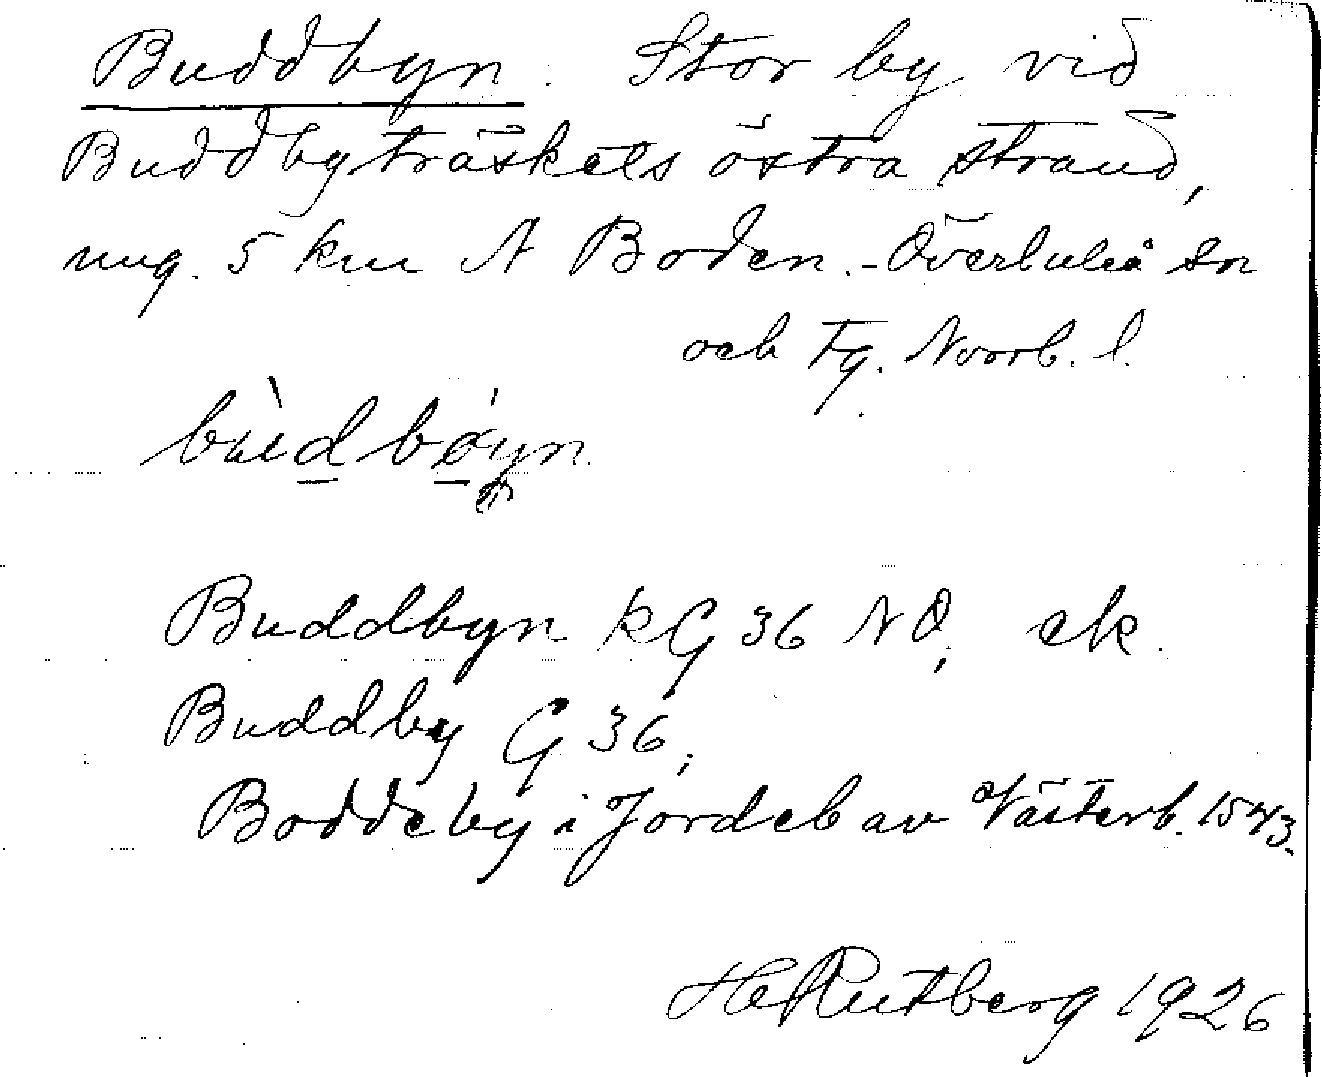 Buddbyn. Stor by vid
Buddbyträskets östra strand,
ung. 5 km N Boden. - Överluleå sn
och Tg. Norrb. l.
bùdbøyn
Buddbyn kG 36 NO, ek.
Buddby G 36,
Boddeby i Jordeb av Västerb. 1543.
Hj Rutberg 1926